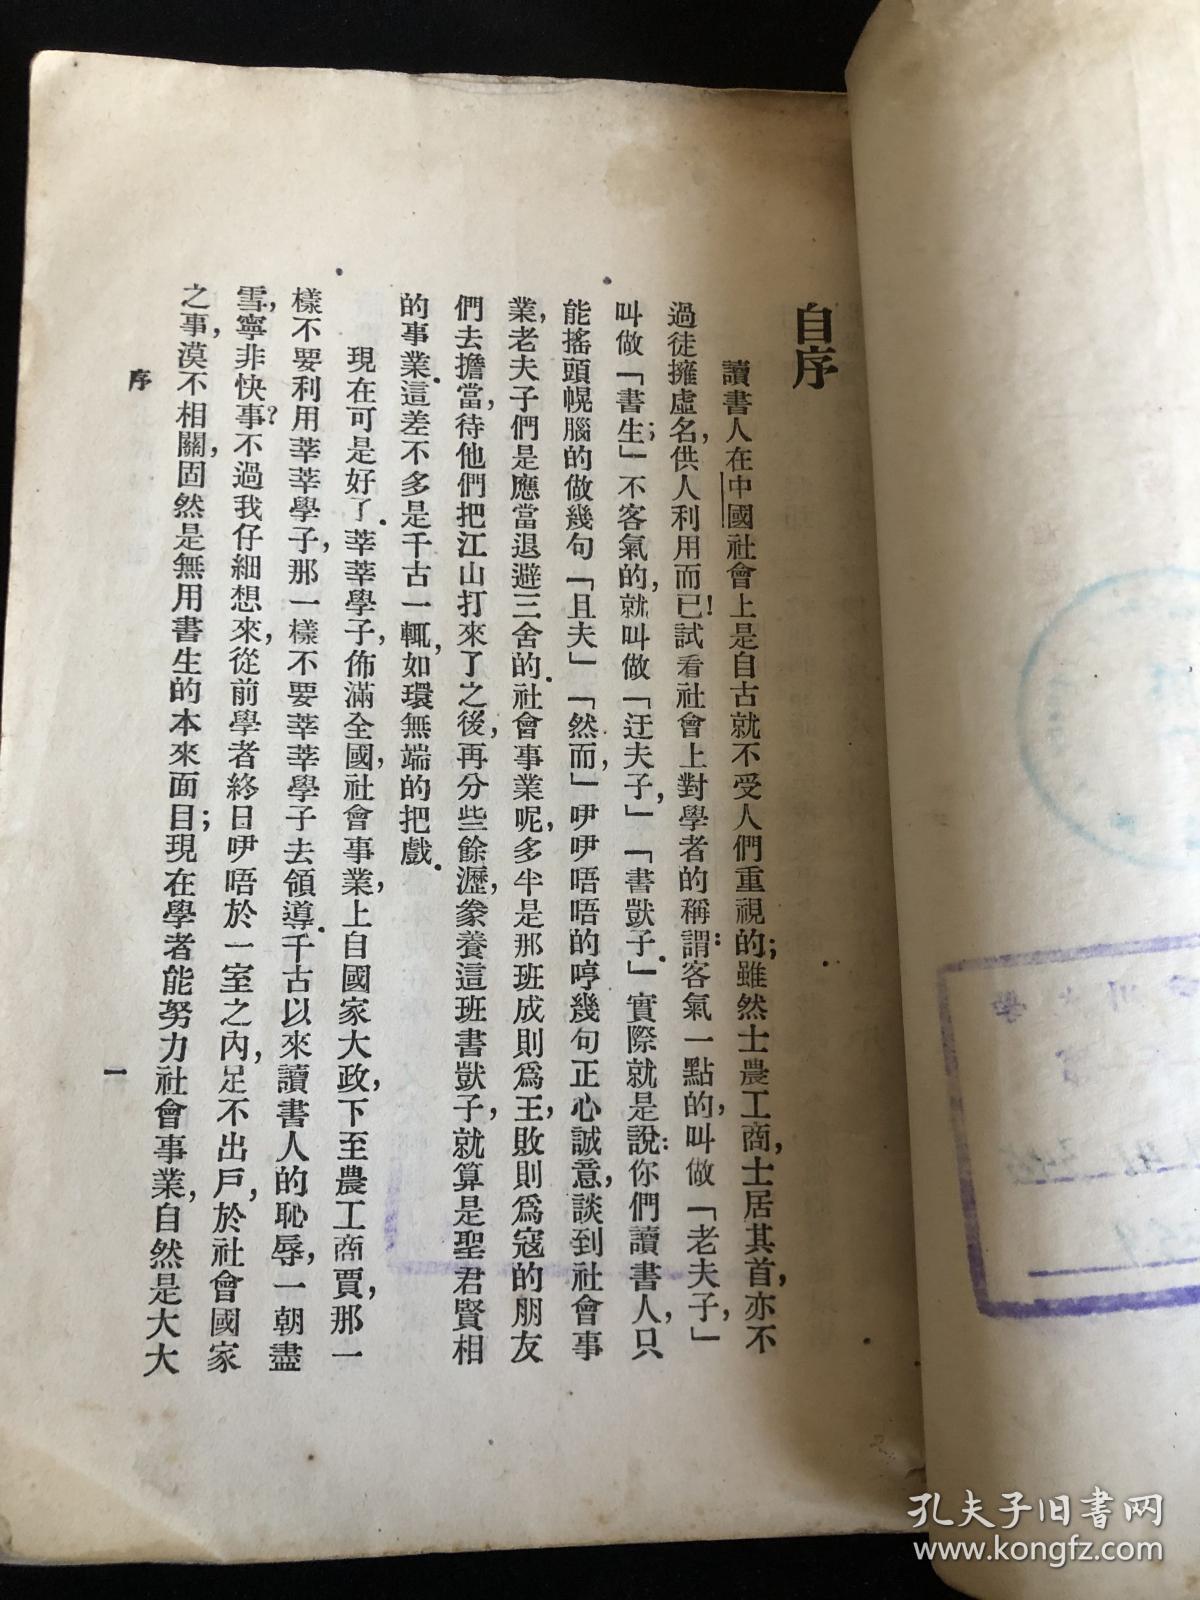 自序
讀書人在中國社會上是自古就不受人們重視的；雖然士農工商，士居其首，亦不
過徒擁虛名，供人利用而已！試看社會上對學者的稱謂：客氣一點的，叫做「老夫子，」
叫做「書生；」不客氣的，就叫做「迂夫子，」「書獃子。」實際就是說：你們讀書人，只
能搖頭幌腦的做幾句「且夫」「然而，」咿咿唔唔的哼幾句正心誠意，談到社會事
業，老夫子們是應當退避三舍的．社會事業呢，多半是那班成則爲王，敗則爲寇的朋友
們去擔當，待他們把江山打來了之後，再分些餘瀝，豢養這班書獃子，就算是聖君賢相
的事業．這差不多是千古一轍，如環無端的把戲．
現在可是好了．莘莘學子，佈滿全國，社會事業，上自國家大政，下至農工商賈，那一
樣不要利用莘莘學子，那一樣不要莘莘學子去領導．千古以來讀書人的恥辱，一朝盡
雪，寧非快事？不過我仔細想來，從前學者終日咿唔於一室之內，足不出戶，於社會國家
之事，漠不相關，固然是無用書生的本來面目；現在學者能努力社會事業，自然是大大
序
一
孔夫子旧书网
www.kongfz.com